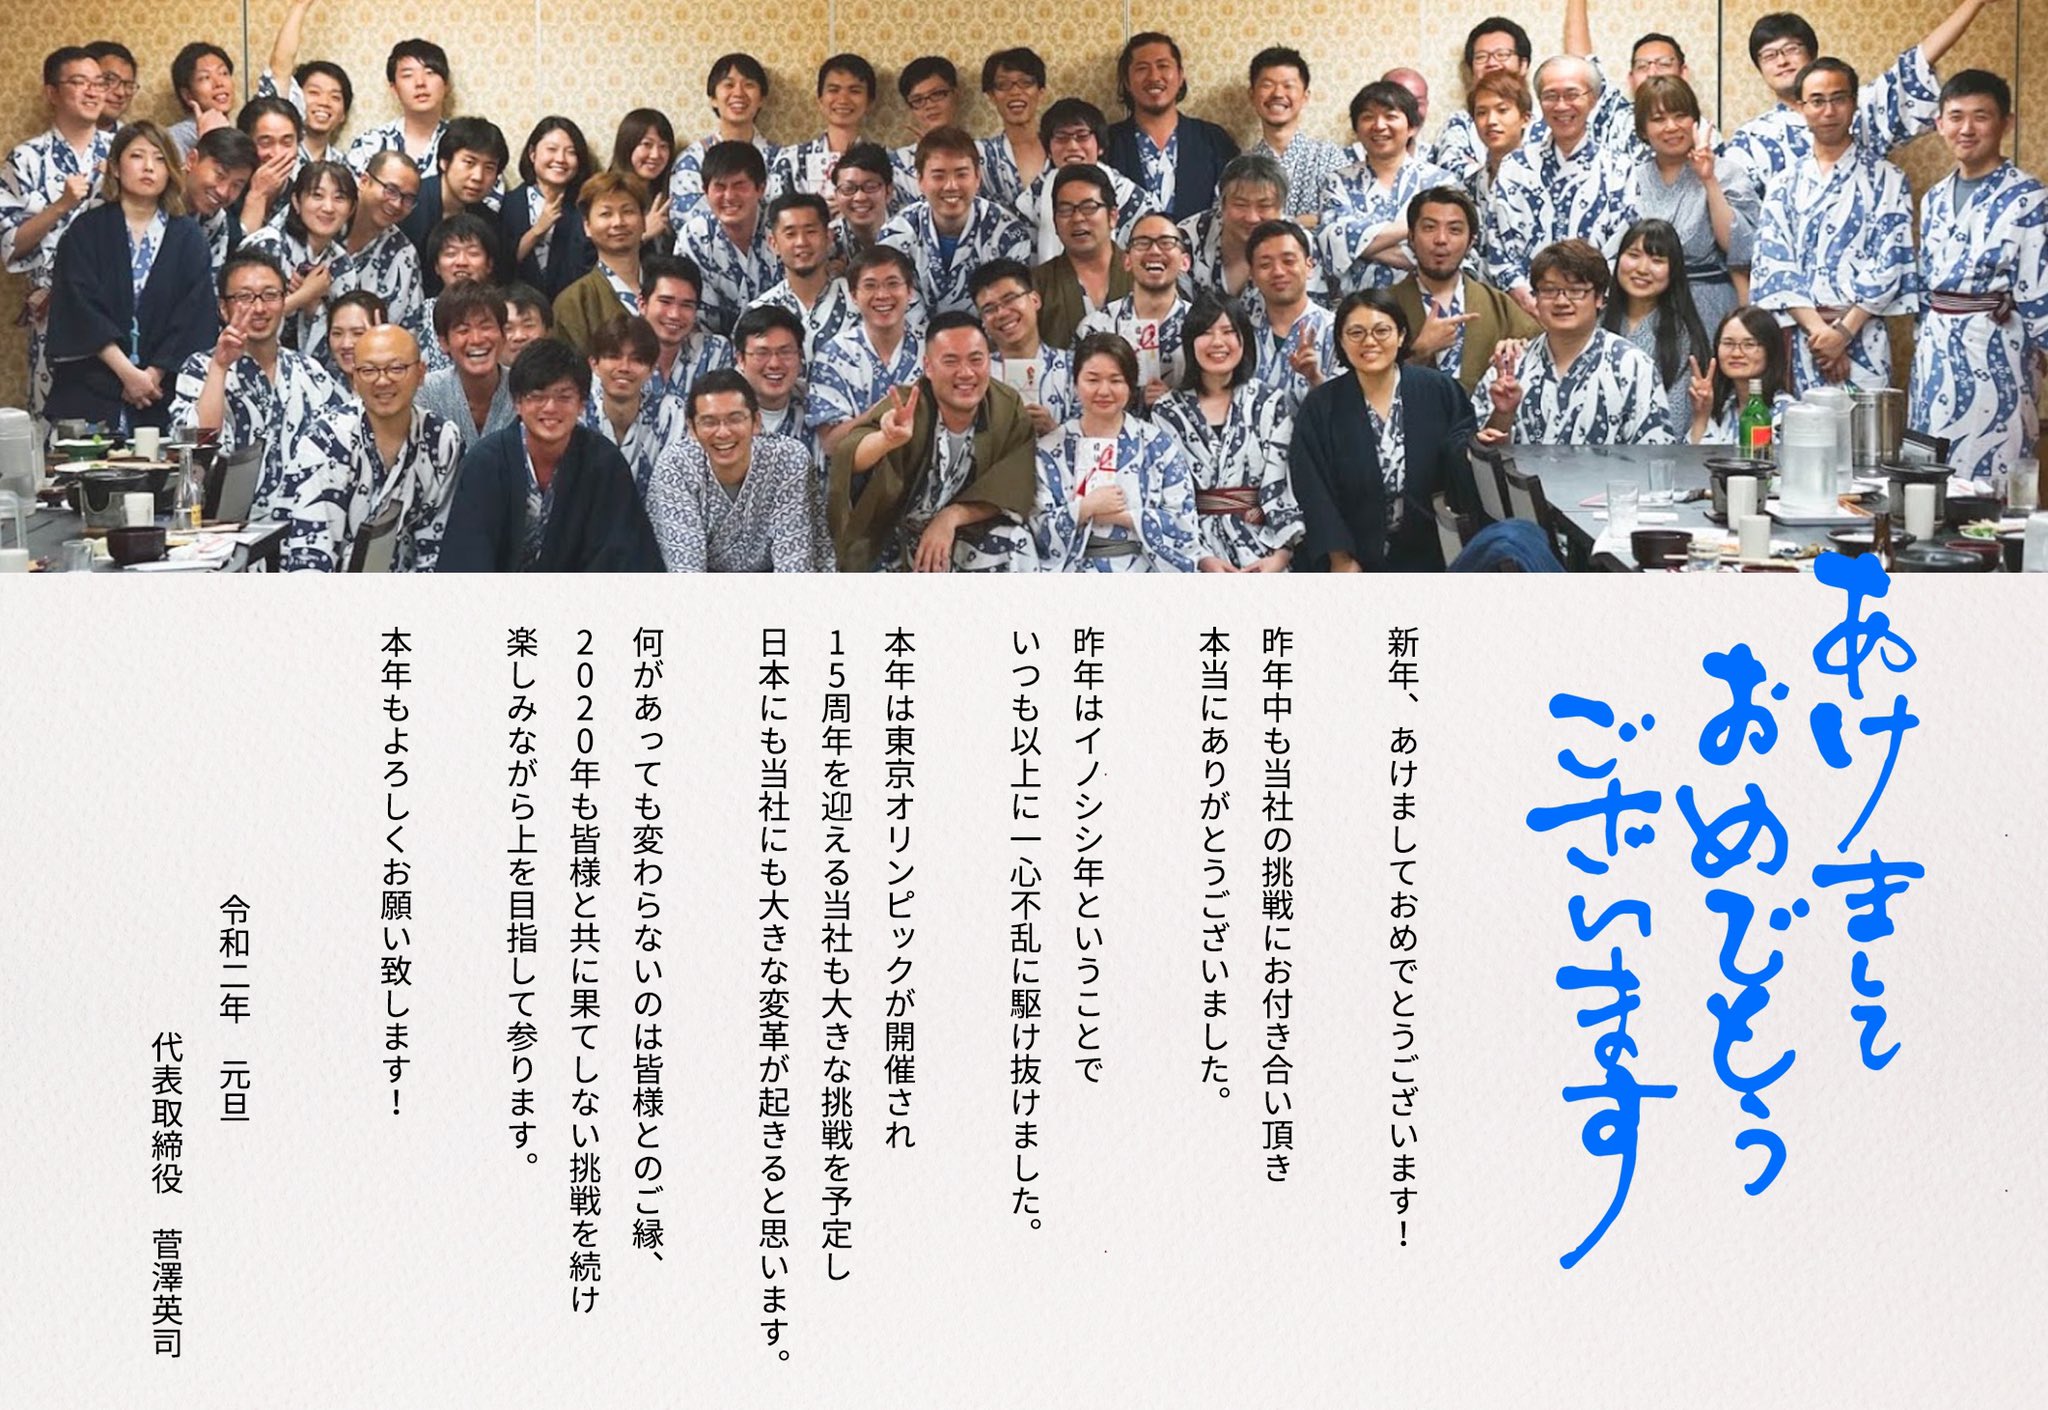 あけまして
おめでとう
ございます
新年、あけましておめでとうございます！
昨年中も当社の挑戦にお付き合い頂き
本当にありがとうございました。
昨年はイノシシ年ということで
いつも以上に一心不乱に駆け抜けました。
本年は東京オリンピックが開催され
15周年を迎える当社も大きな挑戦を予定し
日本にも当社にも大きな変革が起きると思います。
何があっても変わらないのは皆様とのご縁、
2020年も皆様と共に果てしない挑戦を続け
楽しみながら上を目指して参ります。
本年もよろしくお願い致します！
令和二年　元旦
代表取締役　菅澤英司